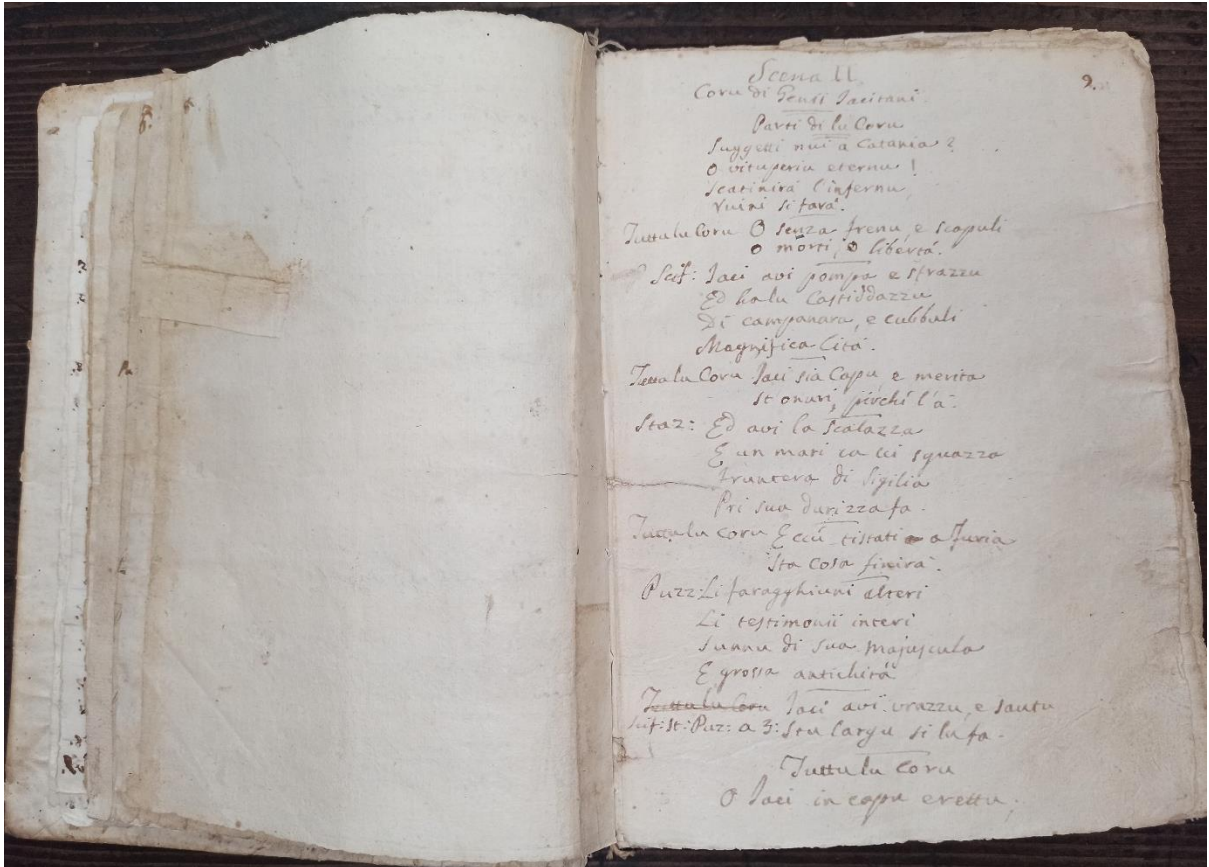 9.
Scena II
Coru di Genti Jacitani.
Parti di lu Coru
Suggetti nui a Catania?
O vituperiu eternu!
Scatinirà l'infernu,
ruini si farà.
Tuttu lu Coru O senza frenu, e scapuli
O morti, o libertà.
Scif: Jaci avi pompa e sfrazzu
Ed ha lu Castiddazzu
Di campanara, e cubbuli
Magnifica Cità.
Tuttu lu Coru Jaci sia Capu, e merita
St'onuri, pirchì l'à.
Staz: Ed avi la Scalazza
E un mari ca ci sguazza
Fruntera di Sigilia
Pri sua durizza fa.
Tuttu lu Coru E cu tistati a Furia
Sta cosa finirà.
Puzz: Li faragghiuni alteri
Li testimonii interi
Sunnu di sua majuscula
E grossa antichità
Tuttu lu Coru Jaci avi vrazzu, e sautu
Scif: St: Puz: a 3: Stu largu si lu fa.
Tuttu lu Coru
O Jaci in capu erettu,